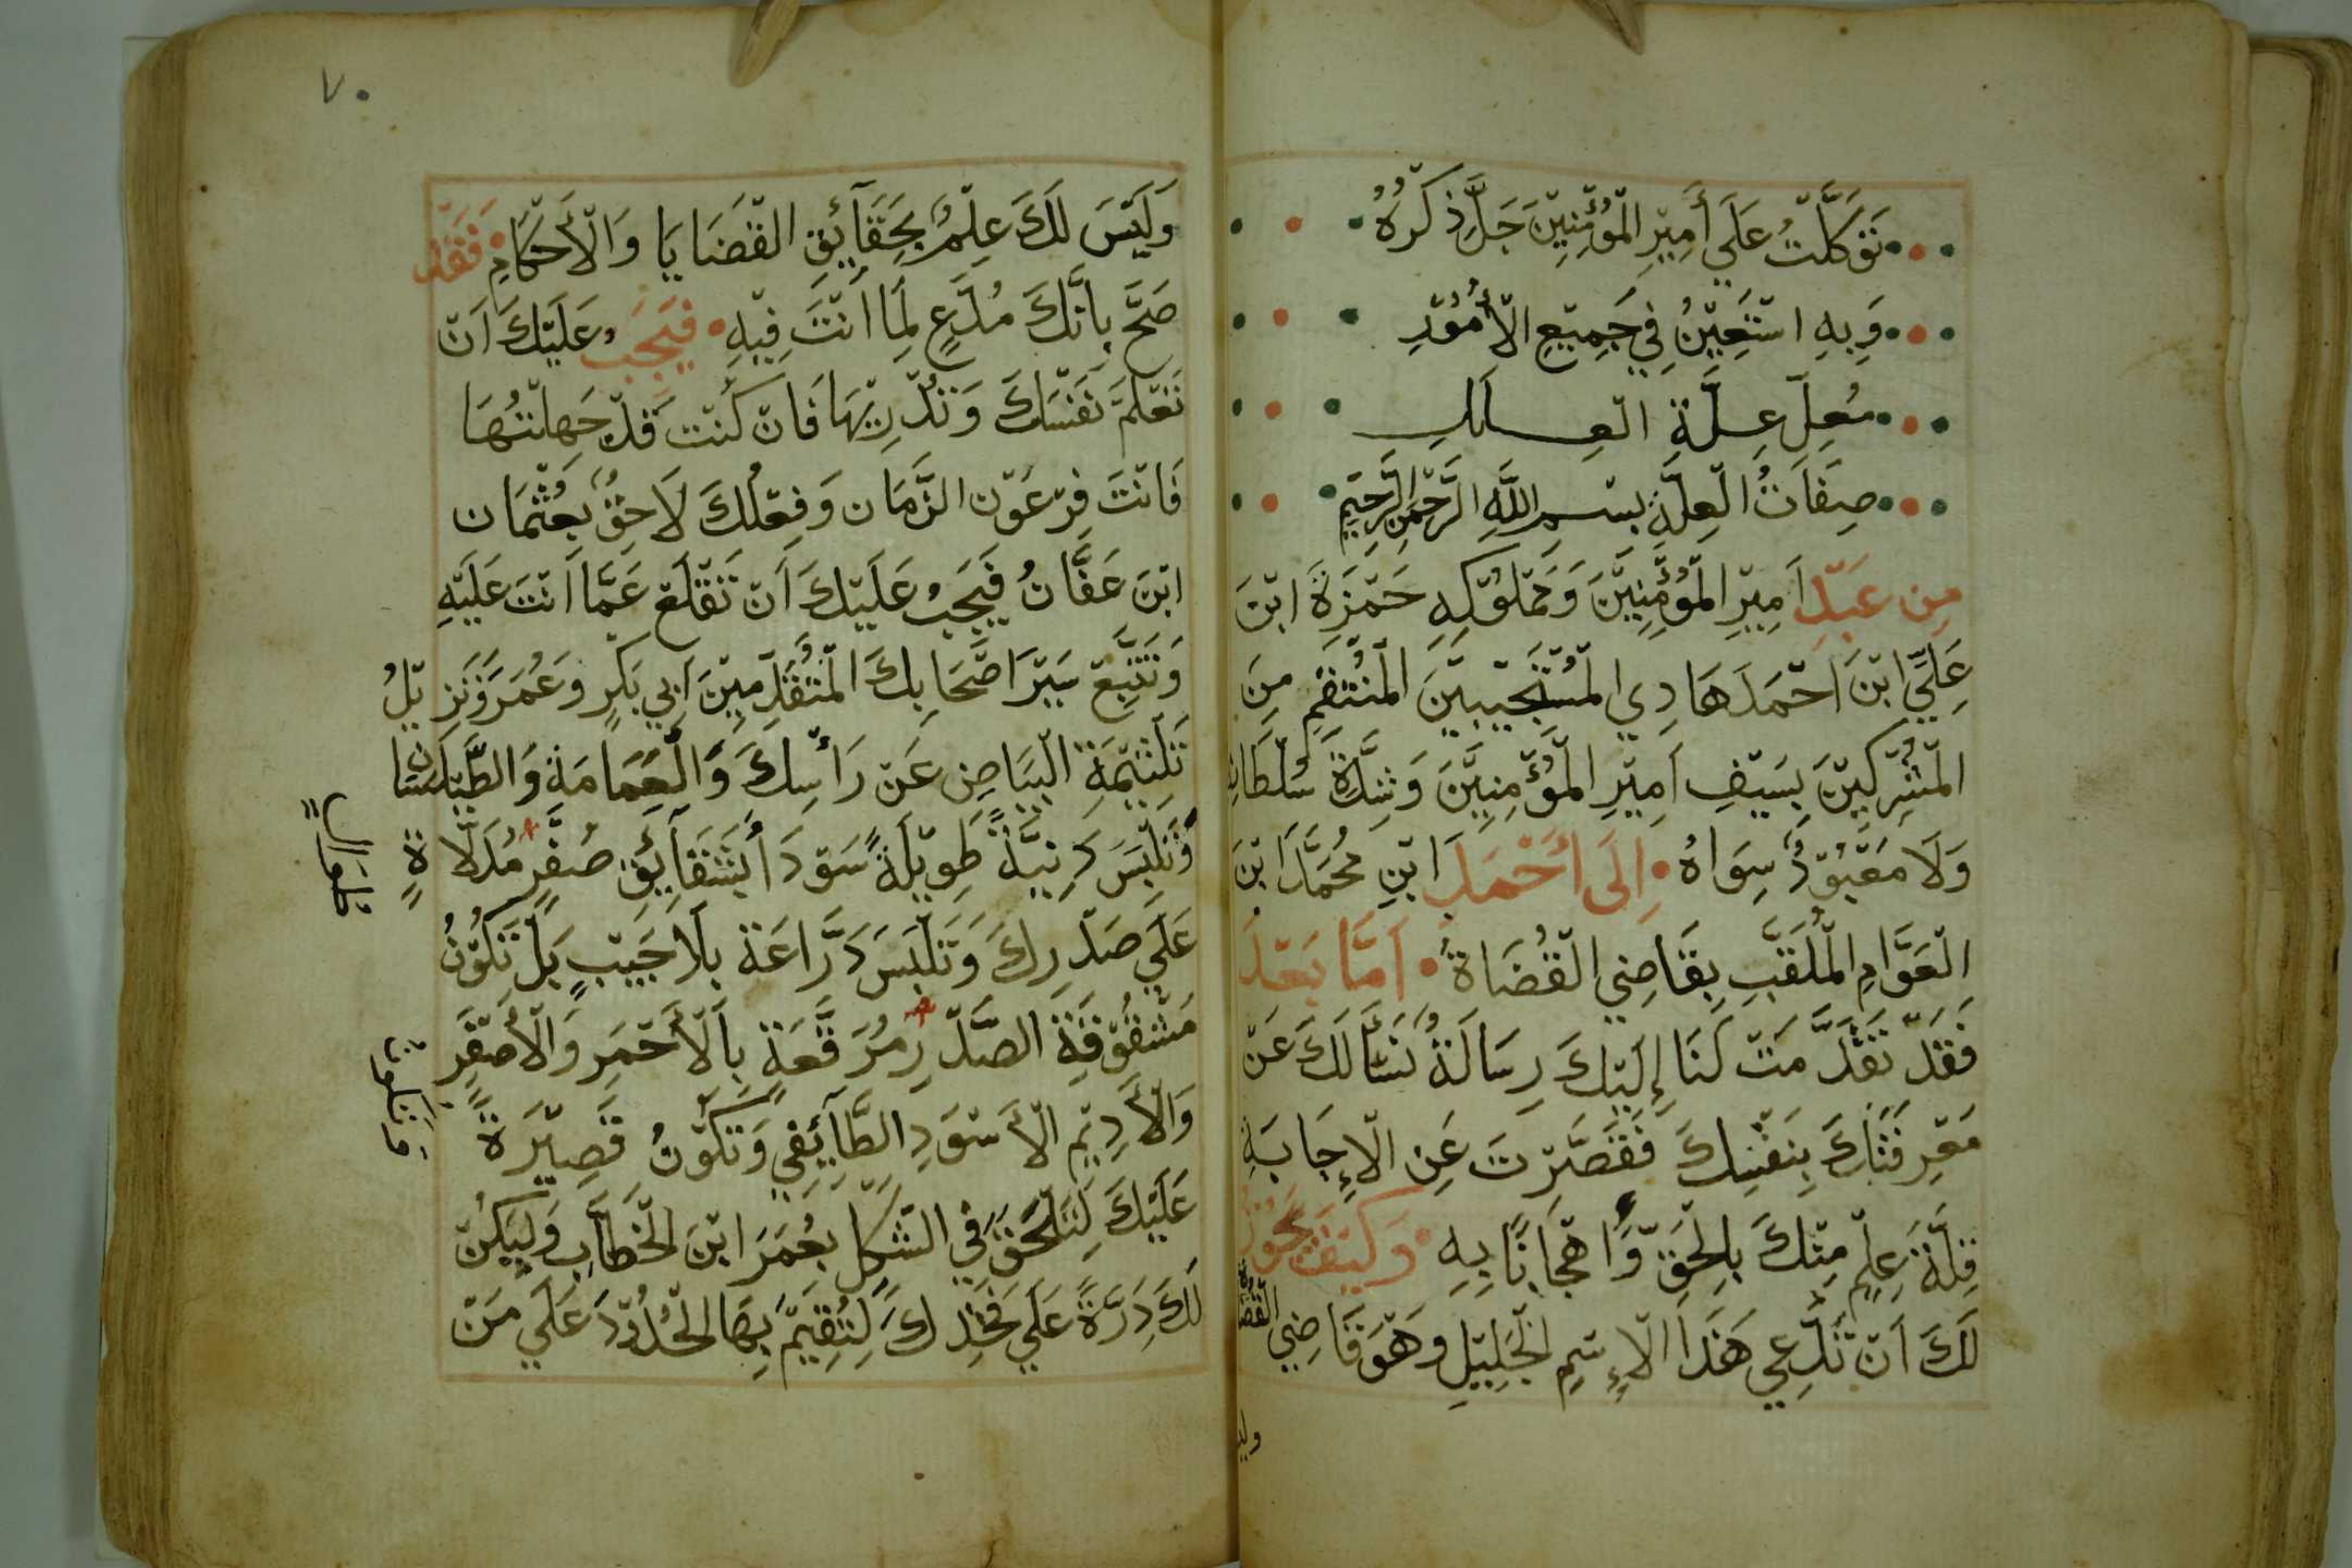 تَوَكَّلْتُ عَلَي أَمِيْرِ الْمُؤْمِنِيْنَ جَلَّ ذِكْرُهُ
وَبِهِ اسْتَعِيْنُ فِي جَمِيْعِ الْأُمُوْرِ
مُعِلِّ عِلَّةِ الْعِــلَلِ
صِفَاتُ الْعِلَّةِ بِسْـمِ اللَّهِ الرَّحْمَنِ الرَّحِيْمِ
مِن عَبْدِ اَمِيْرِ الْمُؤْمِنِيْنَ وَمَمْلُوْكِهِ حَمْزَةَ ابْنَ
عَلِيِّ ابْنَ احْمَدَ هَادِي الْمُسْتَجِيْبِيْنَ الْمُنْتَقِمِ مِنَ
الْمُشْرِكِيْنَ بِسَيْفِ اَمِيْرِ الْمُؤْمِنِيْنَ وَشِدَّةِ سُلْطَانِهِ
وَلَا مَعْبُوْدٌ سِوَاهُ اِلَى اَحْمَدَ ابْنِ مُحَمَّدَ ابْنَ
الْعَوَّامِ الْمُلَقَّبِ بِقَاضِي الْقُضَاةِ اَمَّا بَعْدَ
فَقَدْ تَقَدَّمَتْ لَنَا إِلَيْكَ رِسَالَةٌ نَسْأَلُكَ عَنْ
مَعْرِفَتِكَ بِنَفْسِكَ فَقَصَّرْتَ عَنِ الْإِجَابَةِ
قِلَّةَ عِلْمٍ مِنْكَ بِالْحَقِّ وَاهْجَانًا بِهِ وَكَيْفَ يَجُوْزُ
لَكَ اَنْ تَدَّعِي هَذَا الْإِسْمِ الْجَلِيْلِ وَهُوَ قَاضِي الْقُضَاةِ
وليس
٧٠
وَلَيْسَ لَكَ عِلْمٌ بِحَقَآئِقِ الْقَضَايَا وَالْأَحْكَامِ فَقَدْ
صَحَّ بِاَنَّكَ مُدَّعٍ لِمَا اَنْتَ فِيْهِ فَيَجِبُ عَلَيْكَ اَنْ
تَعْلَمَ نَفْسَكَ وَتَدْرِيْهَا فَاِنْ كُنْتَ قَدْ جَهِلْتُهَا
فَاَنْتَ فِرْعَوْن الزَّمَان وَفِعْلُكَ لَاحِقٌ بِعُثْمَان
ابْنَ عَفَّانُ فَيَجِبُ عَلَيْكَ اَنْ تَقْلَعَ عَمَّا اَنْتَ عَلَيْهِ
وَتَتْبَعَ سَيْرَ اصْحَابِكَ الْمُتَقَدِّمِيْنَ اَبِي بَكْرٍ وَعُمَرَ وَتَزِيْلُ
تَلْثِيْمَةِ الْبَيَاضِ عَنْ رَاْسِكَ وَالْعِمَامَةِ وَالطَّيْلَسَان
وَتَلْبِسَ دَنِيَّةً طَوِيْلَةً سَوْدَا بِشَقَآئِقَ صُفْرٍ مُدَلَّاةٍ
عَلَي صَدْرِكَ وَتَلْبَسَ دَرَّاعَة بِلَا جَيْبٍ بَلْ تَكُوْنُ
مَشْقُوْقَةِ الصَّدْرِ مُرَقَّعَةٍ بِالْأَحْمَرِ وَالْأَصْفَرِ
وَالْأَدِيْم الْأَسْوَدِ الطَّآئِفِي وَتَكُوْنُ قَصِيْرَةً
عَلَيْكَ لِتَلْحَقَ فِي الشَّكْلِ بِعُمَرَ ابْنَ الْخَطَّابِ وَلِيَكُنْ
لَكَ دِرَّةً عَلَي فَخْذِكَ لِتُقِيْمَ بِهَا الْحُدُوْدَ عَلَي مَنْ